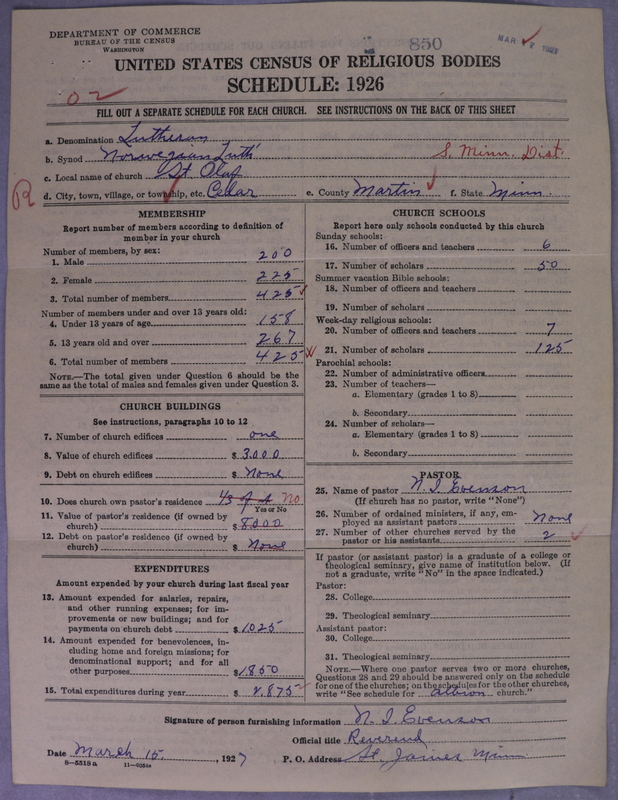 DEPARTMENT OF COMMERCE
BUREAU OF THE CENSUS
WASHINGTON
850
MAR 1927
UNITED STATES CENSUS OF RELIGIOUS BODIES
SCHEDULE: 1926
02
FILL OUT A SEPARATE SCHEDULE FOR EACH CHURCH. SEE INSTRUCTIONS ON THE BACK OF THIS SHEET
a. Denomination Lutheran
b. Synod Norwegian Luth S. Minn. Dist.
c. Local name of church St. Olaf
R d. City, town, village, or township, etc. Cedar e. County Martin f. State Minn.
MEMBERSHIP
Report number of members according to definition of
member in your church
Number of members, by sex:
1. Male 200
2. Female 225
3. Total number of members 425
Number of members under and over 13 years old:
4. Under 13 years of age 158
5. 13 years old and over 267
6. Total number of members 425
NOTE.—The total given under Question 6 should be
same as the total of males and females given under Question 3.
CHURCH BUILDINGS
See instructions, paragraphs 10 to 12
7. Number of church edifices one
8. Value of church edifices $ 3.000
9. Debt on church edifices $ None
10. Does church own pastor's residence 1/3 of it No
Yes or No
11. Value of pastor's residence (if owned by
church) $ 8000
12. Debt on pastor's residence (if owned by
church) $ None
EXPENDITURES
Amount expended by your church during last fiscal year
13. Amount expended for salaries, repairs,
and other running expenses; for im-
provements or new buildings; and for
payments on church debt $ 1025
14. Amount expended for benevolences, in-
cluding home and foreign missions; for
denominational support; and for all
other purposes $ 1850
15. Total expenditures during year $ 2,875
CHURCH SCHOOLS
Report here only schools conducted by this church
Sunday schools:
16. Number of officers and teachers 6
17. Number of scholars 50
Summer vacation Bible schools:
18. Number of officers and teachers
19. Number of scholars
Week-day religious schools:
20. Number of officers and teachers 7
21. Number of scholars 125
Parochial schools:
22. Number of administrative officers
23. Number of teachers—
a. Elementary (grades 1 to 8)
b. Secondary
24. Number of scholars—
a. Elementary (grades 1 to 8)
b. Secondary
PASTOR
25. Name of pastor N. I. Evenson
(If church has no pastor, write "None")
26. Number of ordained ministers, if any, em-
ployed as assistant pastors None
27. Number of other churches served by the
pastor or his assistants 2
If pastor (or assistant pastor) is a graduate of a college or
theological seminary, give name of institution below. (If
not a graduate, write "No" in the space indicated.)
Pastor:
28. College
29. Theological seminary
Assistant pastor:
30. College
31. Theological seminary
NOTE.—Where one pastor serves two or more churches,
Questions 28 and 29 should be answered only on the schedule
for one of the churches; on the schedules for the other churches,
write "See schedule for Albion church."
Signature of person furnishing information N. I. Evenson
Official title Reverend
Date March 15, 1927 P. O. Address St. James Minn
8—5518 a